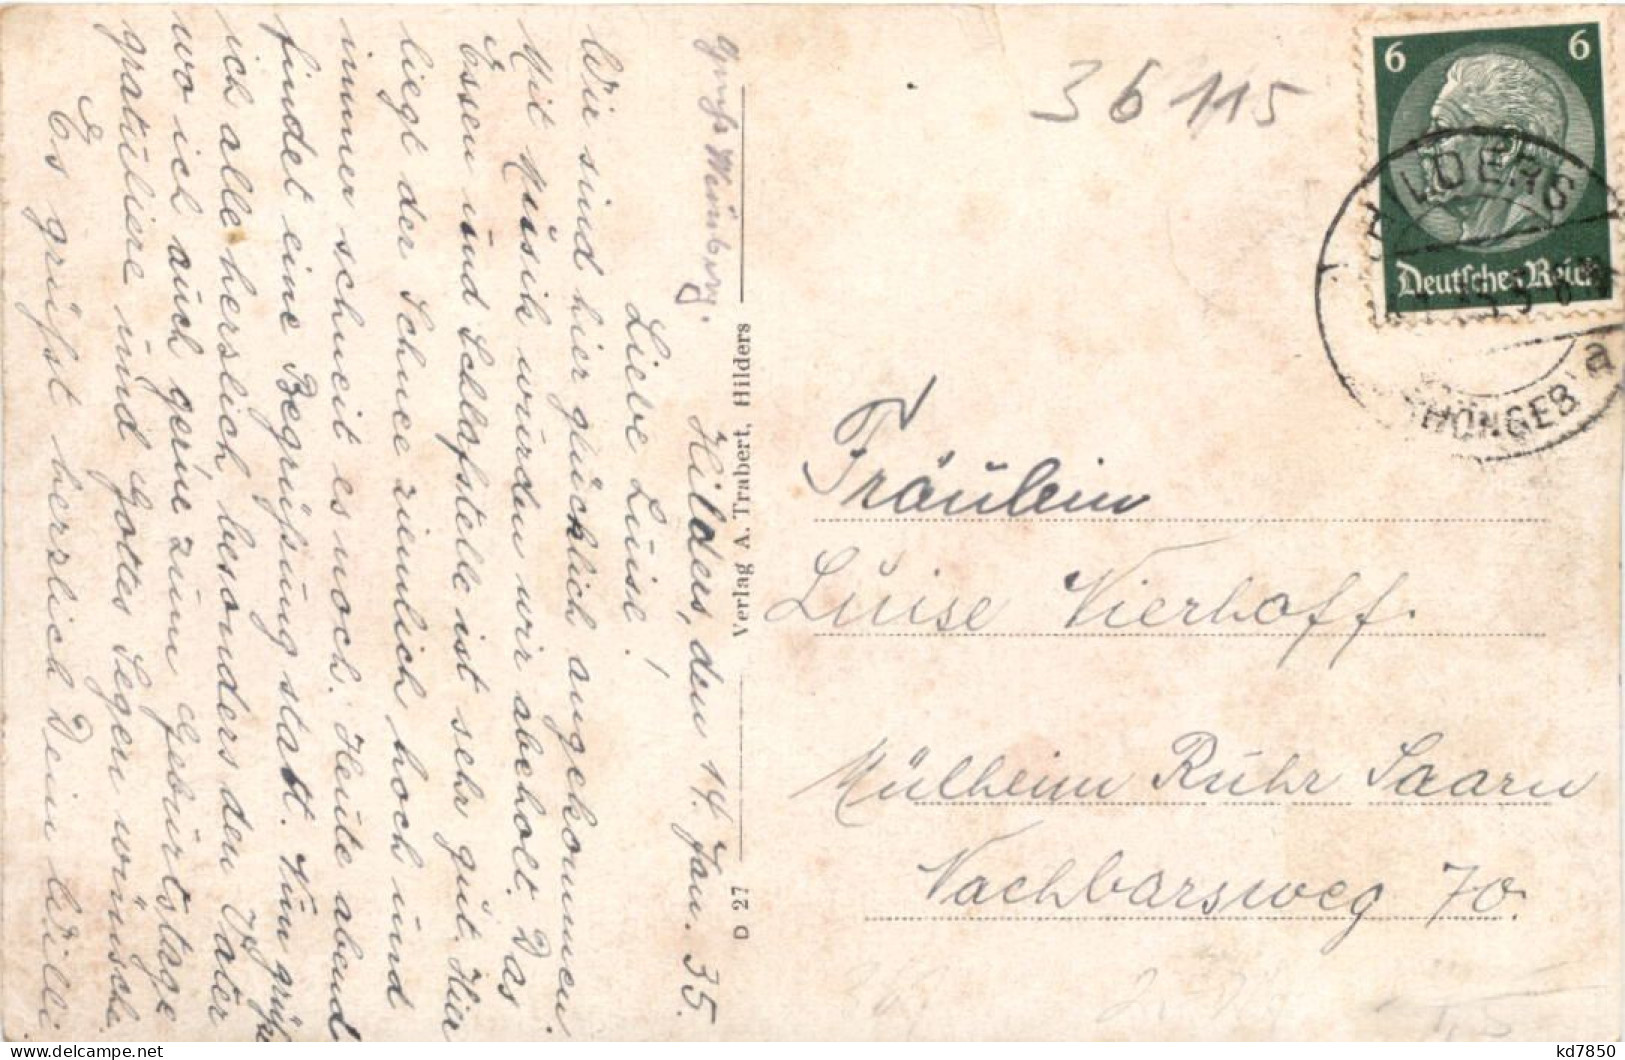 Gruß Münberg.
Hilders, den 14. Jan. 35.
Liebe Luise!
Wir sind hier glücklich angekommen.
Mit Musik wurden wir abeholt. Das
Essen und Schlafstelle ist sehr gut. Hier
liegt der Schnee ziemlich hoch und
immer schneit es noch. Heute abend
findet eine Begrüßung statt. Nun grüße
ich alle herslich, besonders den Vater
wo ich auch gerne zum Geburtstage
gratuliere und Gottes Segen wünsche.
Es grüßt herzlich Dein Willi.
Verlag A. Trabert, Hilders
D 27
36115
6 6
Deutsches Reich
HILDERS
a
Fräulein
Luise Vierhoff.
Mülheim Ruhr Saarn
Nachbarsweg 70.
delcampe.net
kd7850